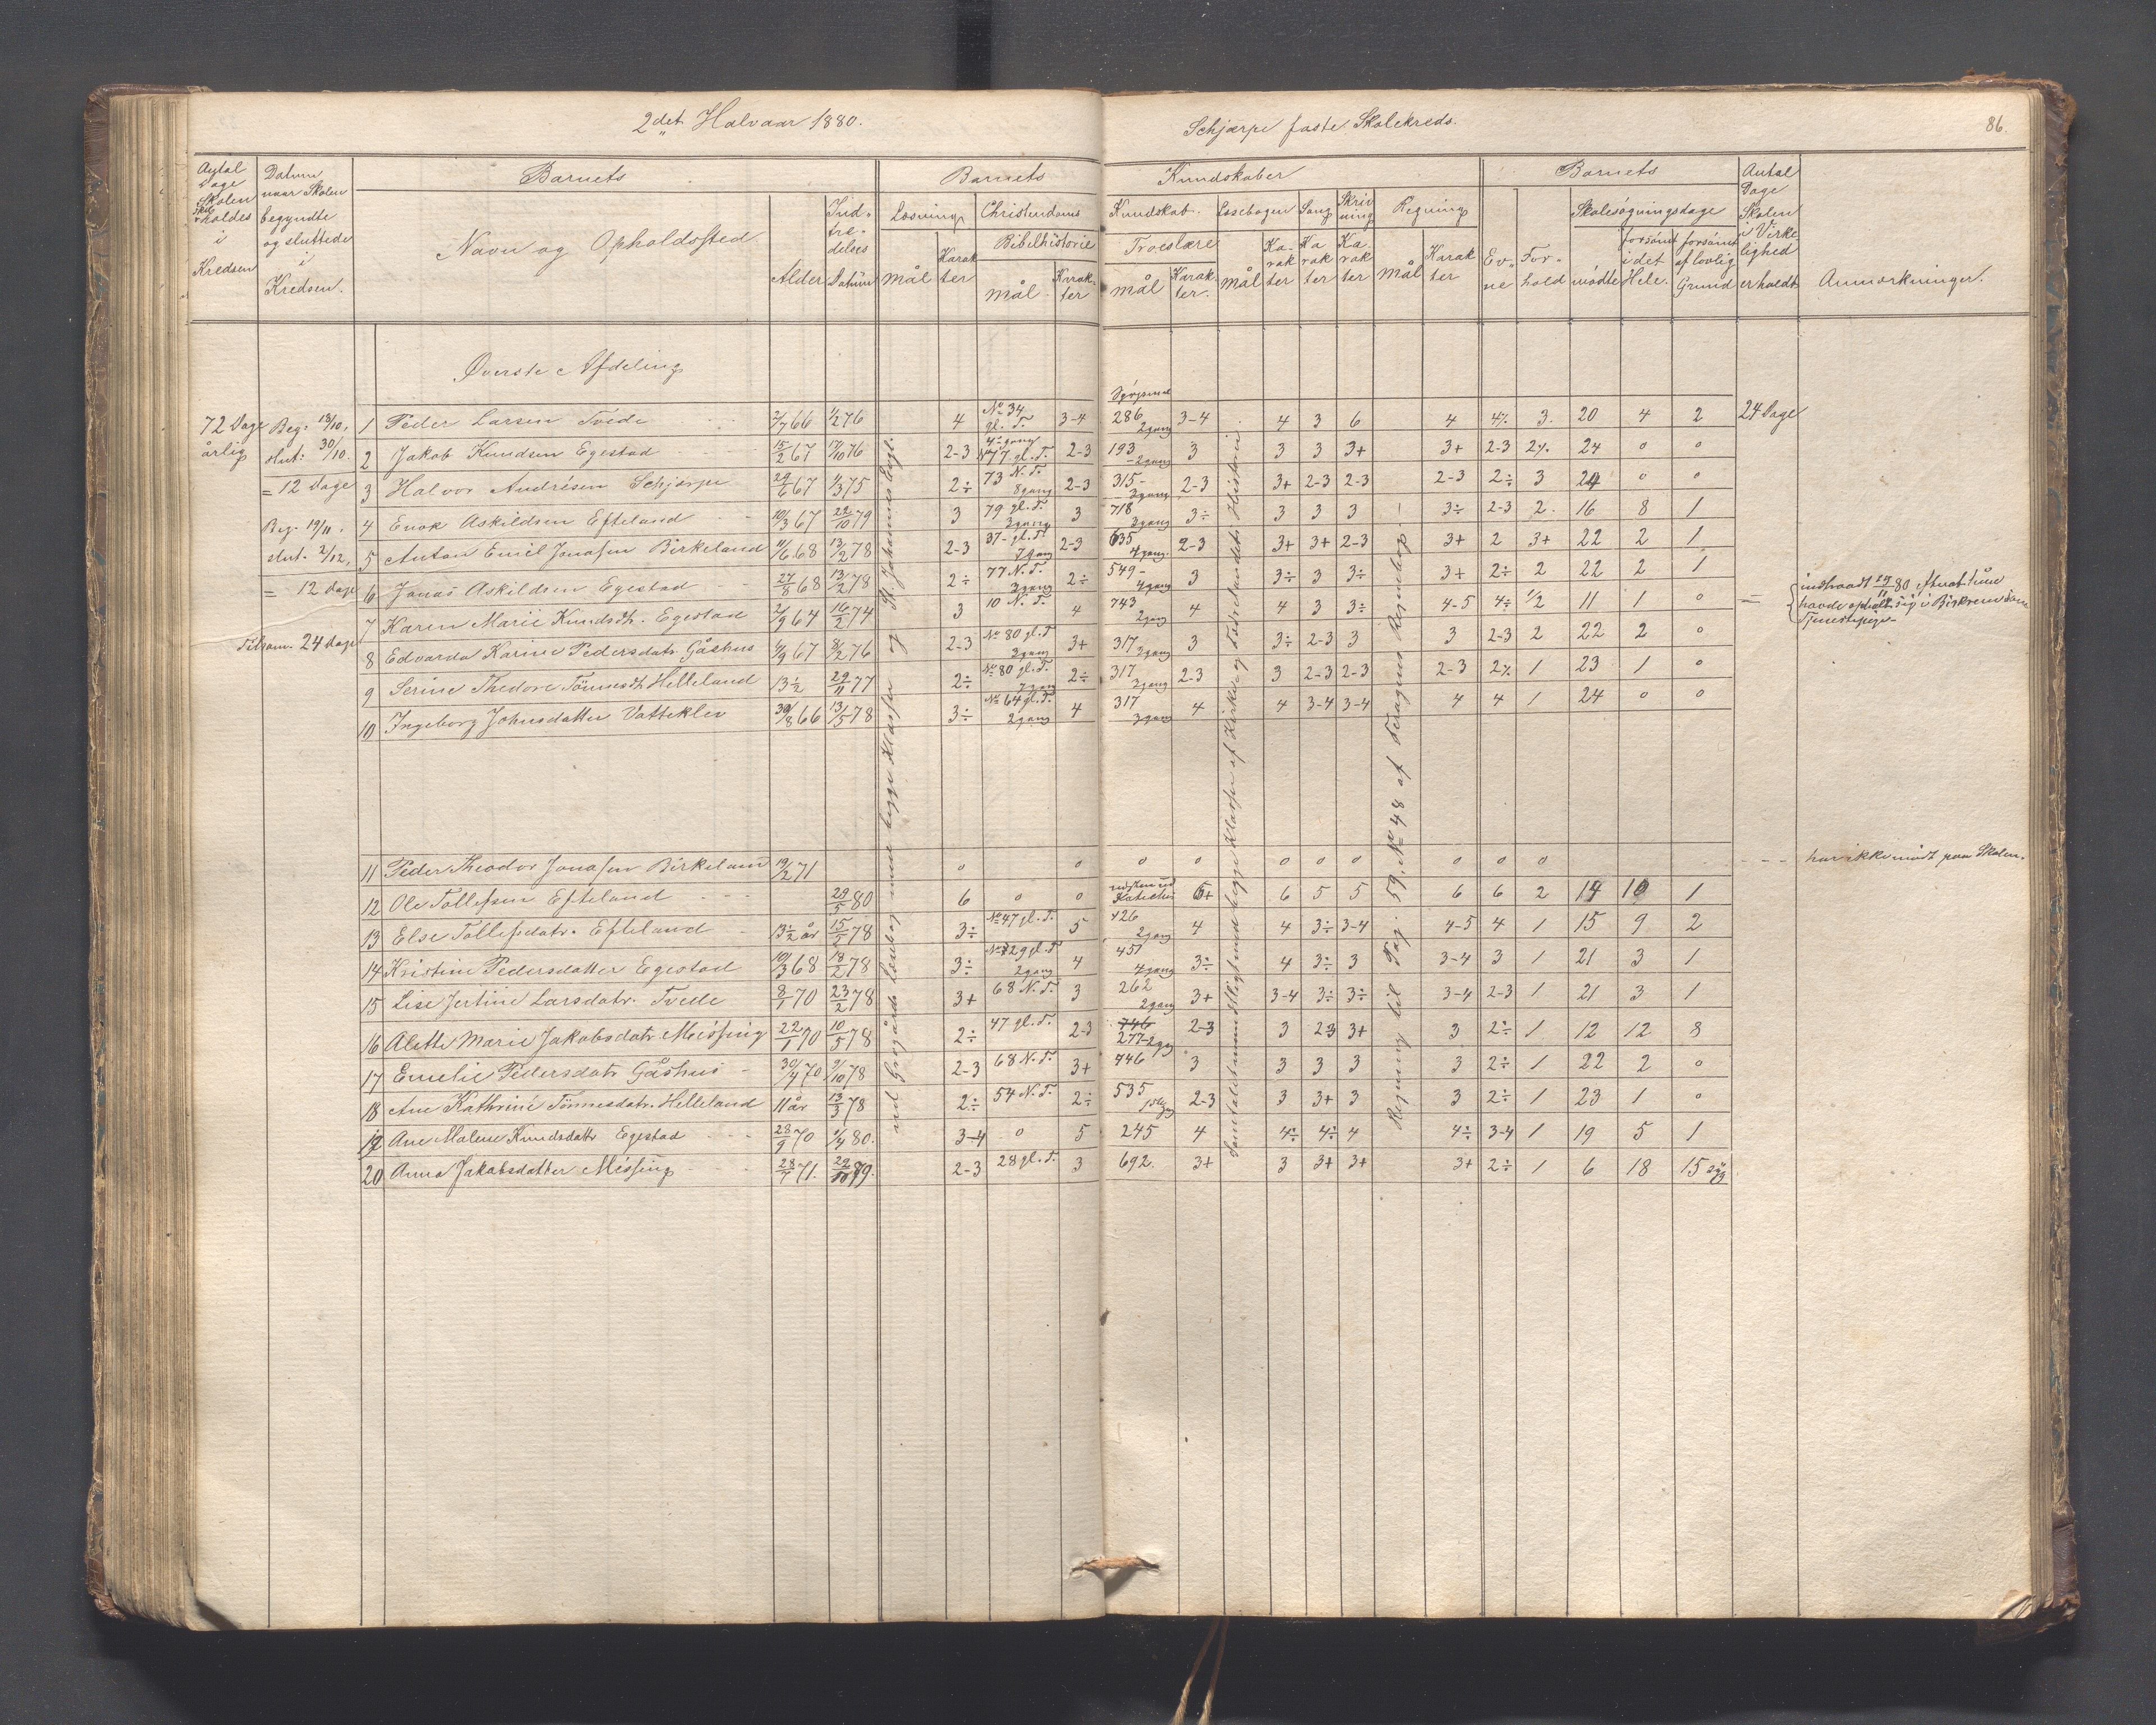 2det Halvaar 1880.
Schjærpe faste Skolekreds.
86.
Antal Dage Skolen skal holdes i Kredsen
Datum naar Skolen begyndte og sluttede i Kredsen.
Barnets
Navn og Opholdssted
Alder
Indtrædelses Datum
Barnets Kundskaber
Læsning
Mål
Karakter
Christendoms Kundskab.
Bibelhistorie
Mål
Karakter
Troeslære
Mål
Karakter.
Læsebogen
Mål
Karakter
Sang
Karakter
Skrivning
Karakter
Regning
Mål
Karakter
Barnets
Evne
Forhold
Skolesøgningsdage
mødte
forsømt i det Hele.
forsømt af lovlig Grund
Antal Dage Skolen i Virkelighed er holdt
Anmærkninger.
Øverste Afdeling
72 Dage årlig
Beg. 18/10, slut: 30/10. = 12 Dage
Beg. 19/11, slut. 2/12, = 12 dage
Tilsam. 24 dage
1 Peder Larsen Tvede 2/7 66 1/2 76 4 No 34 gl. T. 3-4 286 2gang 3-4 4 3 6 4 4% 3. 20 4 2 24 Dage
2 Jakob Knudsen Egestad 15/2 67 17/10 76 2-3 77 gl. T. 2-3 193 - 2gang 3 3 3 3+ 3+ 2-3 2% 24 0 0
3 Halvor Andrésen Schjærpe 29/6 67 1/3 75 2÷ 73 N. T. 8gang 2-3 315 - 3gang 2-3 3+ 2-3 2-3 2-3 2÷ 3 24 0 0
4 Enok Askildsen Efteland 10/3 67 22/10 79 3 79 gl. T. 3gang 3 718 3gang 3÷ 3 3 3 3÷ 2-3 2. 16 8 1
5 Anton Emil Jonassen Birkeland 11/6 68 13/2 78 2-3 37 - gl. T 7gang 2-3 635 4gang. 2-3 3+ 3+ 2-3 3+ 2 3+ 22 2 1
6 Jonas Askildsen Egestad 27/8 68 13/2 78 2÷ 77 N. T. 3gang 2÷ 549 - 4gang 3 3÷ 3 3÷ 3+ 2÷ 2 22 2 1
7 Karen Marie Knudsdt. Egestad 2/9 64 16/2 74 3 10 N. T. 4 743 2gang 4 4 3 3÷ 4-5 4÷ 1/2 11 1 0
8 Edvarda Karine Pedersdatr. Gåshus 4/9 67 8/2 76 2-3 No 80 gl. T 3gang 3+ 317 3gang 3 3÷ 2-3 3 3 2-3 2 22 2 0
9 Serine Thedore Tønnesdt. Helleland 13 1/2 29/11 77 2÷ No 80 gl. T. 7gang 2÷ 317 3gang 2-3 3 2-3 2-3 2-3 2% 1 23 1 0
10 Ingeborg Johnsdatter Vatteklev 30/8 66 13/5 78 3÷ No 64 gl. T. 2gang 4 317 3gang 4 4 3-4 3-4 4 4 1 24 0 0
11 Peder Theodor Jonassen Birkeland 19/2 71 0 0 0 0 0 0 0 0 0 0 har ikke mødt paa Skolen.
12 Ole Tollefsen Efteland 29/5 80 6 0 0 6+ 6 5 5 6 6 2 14 10 1
13 Else Tollefsdatr. Efteland 13 1/2 år 15/2 78 3÷ No 47 gl. T. 5 426 2gang 4 4 3÷ 3-4 4-5 4 1 15 9 2
14 Kristine Pedersdatter Egestad 10/3 68 18/2 78 3÷ 29 gl. T 2gang 4 451 4gang 3÷ 4 3÷ 3 3-4 3 1 21 3 1
15 Lise Jertine Larsdatr. Tvede 8/1 70 23/2 78 3+ 68 N. T. 3 262 2gang 3+ 3-4 3÷ 3÷ 3-4 2-3 1 21 3 1
16 Alette Marie Jakobsdatr. Missing 22/1 70 10/5 78 2÷ 47 gl. T. 2-3 746 277-2gg 2-3 3 2-3 3+ 3 2÷ 1 12 12 8
17 Emelie Pedersdatr. Gåshus 30/4 70 9/10 78 2-3 68 N. T. 3+ 446 3 3 3 3 3 2÷ 1 22 2 0
18 Ane Kathrine Tønnesdatr. Helleland 11 år 13/3 78 2÷ 54 N. T. 2÷ 535 2-3 3 3+ 3 3 2÷ 1 23 1 0
19 Ane Malene Knudsdatr. Egestad 28/9 70 1/4 80. 3-4 0 5 245 4 4÷ 4÷ 4 4÷ 3-4 1 19 5 1
20 Anna Jakobsdatter Missing 28/7 71. 22/10 79. 2-3 28 gl. T. 3 692. 3+ 3 3+ 3+ 3+ 2÷ 1 6 18 15 syg
havde opholdt sig i Birkrem som Tjenestepige -
Regning til Pag. 59, No 48 af Regnebog. -